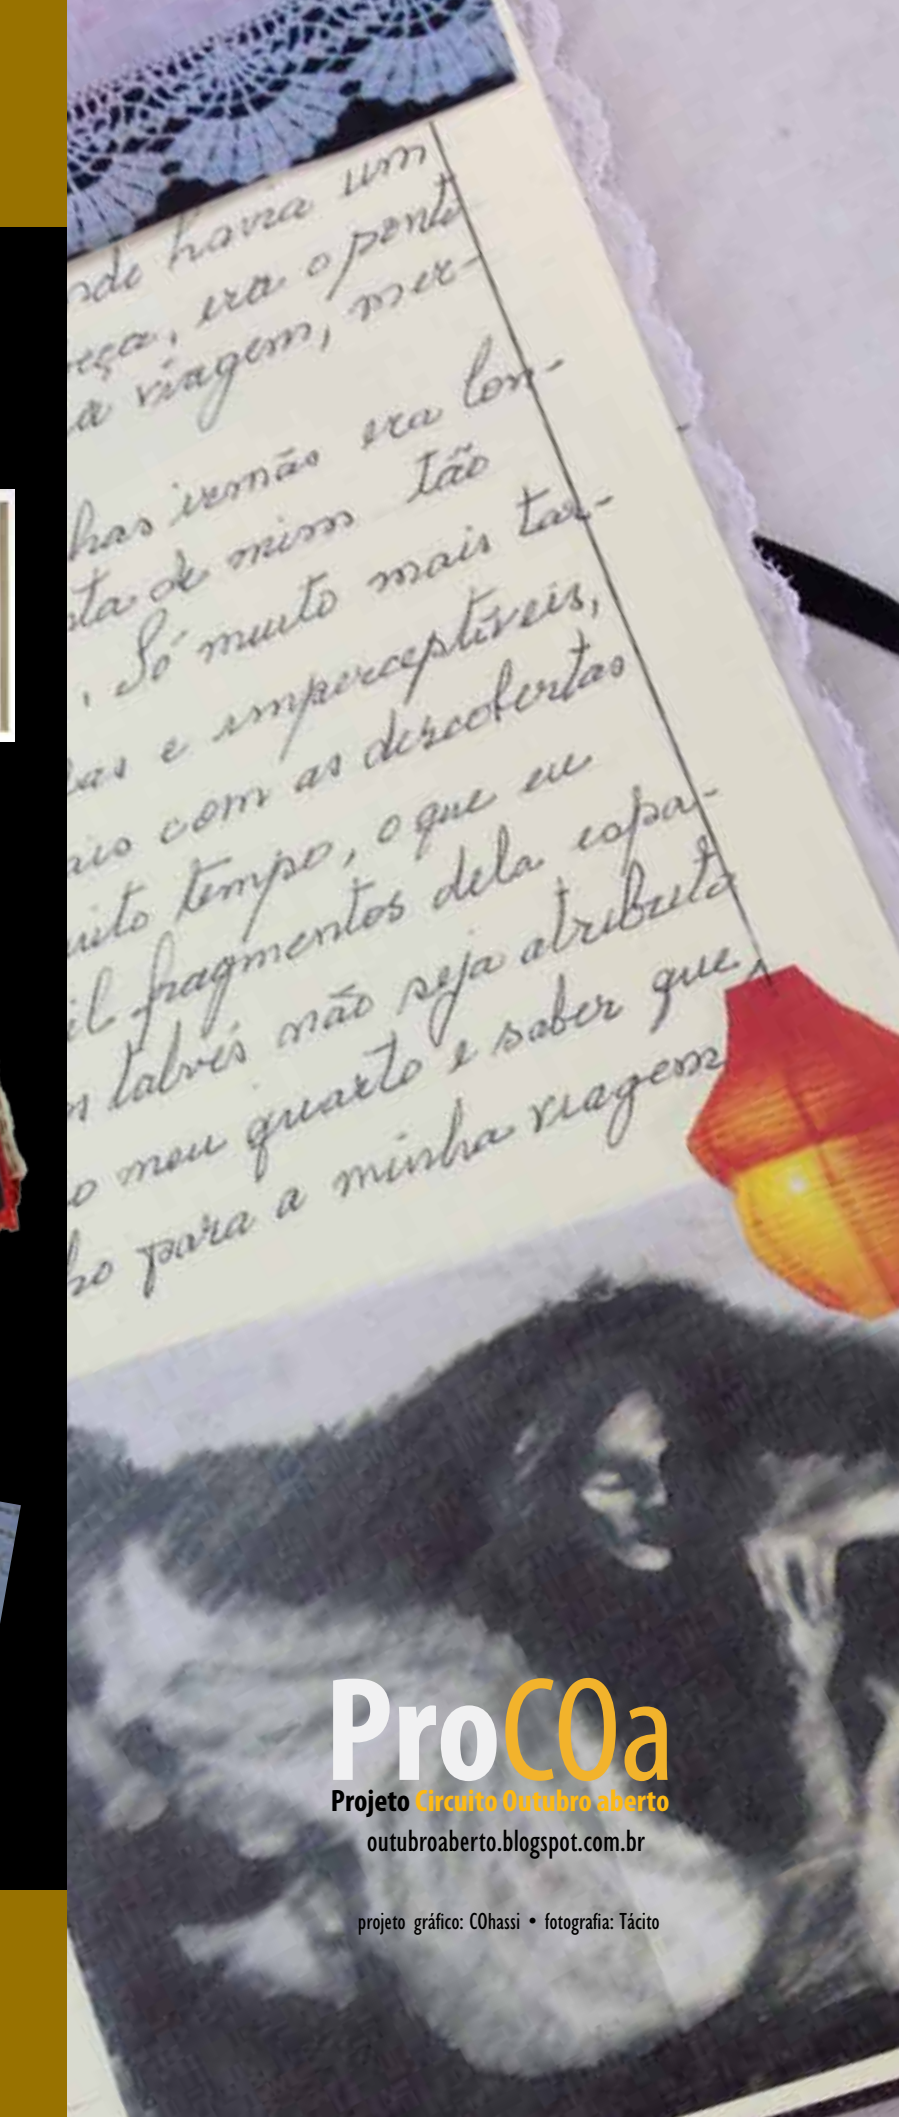 nde havia um
eça, era o pente
a viagem, mer-
has irmãs era lon-
sta de mim tão
. Só muito mais tar-
as e imperceptíveis,
ais com as descobertas
uito tempo, o que eu
il fragmentos dela espa-
m talvés não seja atributo
o meu quarto e saber que
ho para a minha viagem
ProCOa
Projeto Circuito Outubro aberto
outubroaberto.blogspot.com.br
projeto gráfico: COhassi • fotografia: Tácito